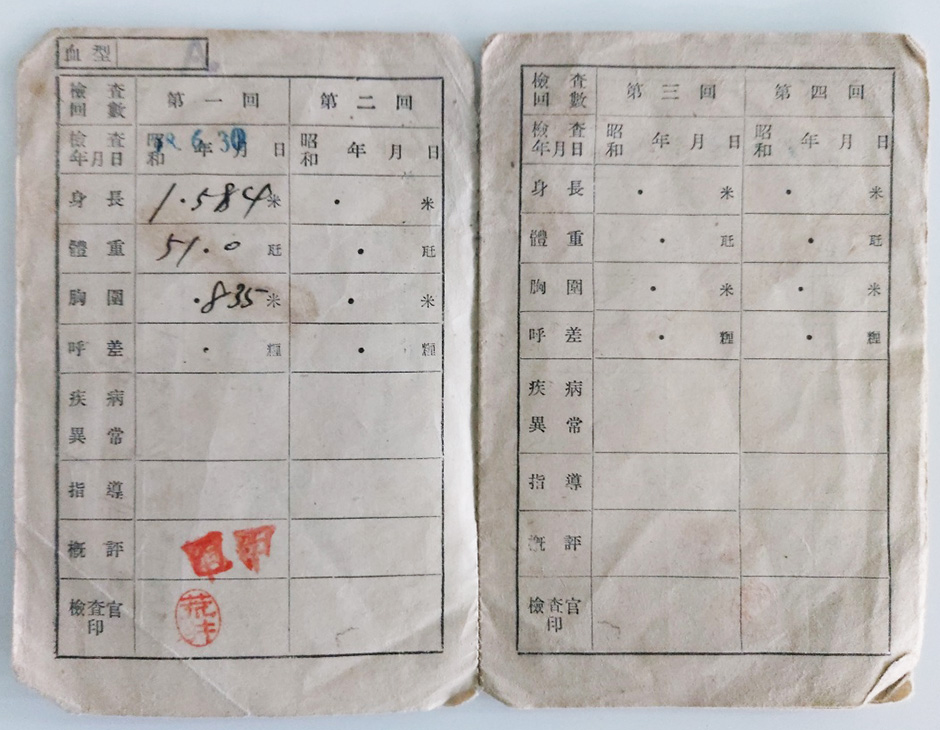 血型 A
檢查回數 第一回 第二回
檢查年月日 昭和 19.6.30 年 月 日 昭和 年 月 日
身長 1.584 米 . 米
體重 51.0 瓩 . 瓩
胸圍 .835 米 . 米
呼差 . 糎 . 糎
疾病異常
指導
概評 甲
檢查官印
檢查回數 第三回 第四回
檢查年月日 昭和 年 月 日 昭和 年 月 日
身長 . 米 . 米
體重 . 瓩 . 瓩
胸圍 . 米 . 米
呼差 . 糎 . 糎
疾病異常
指導
概評
檢查官印